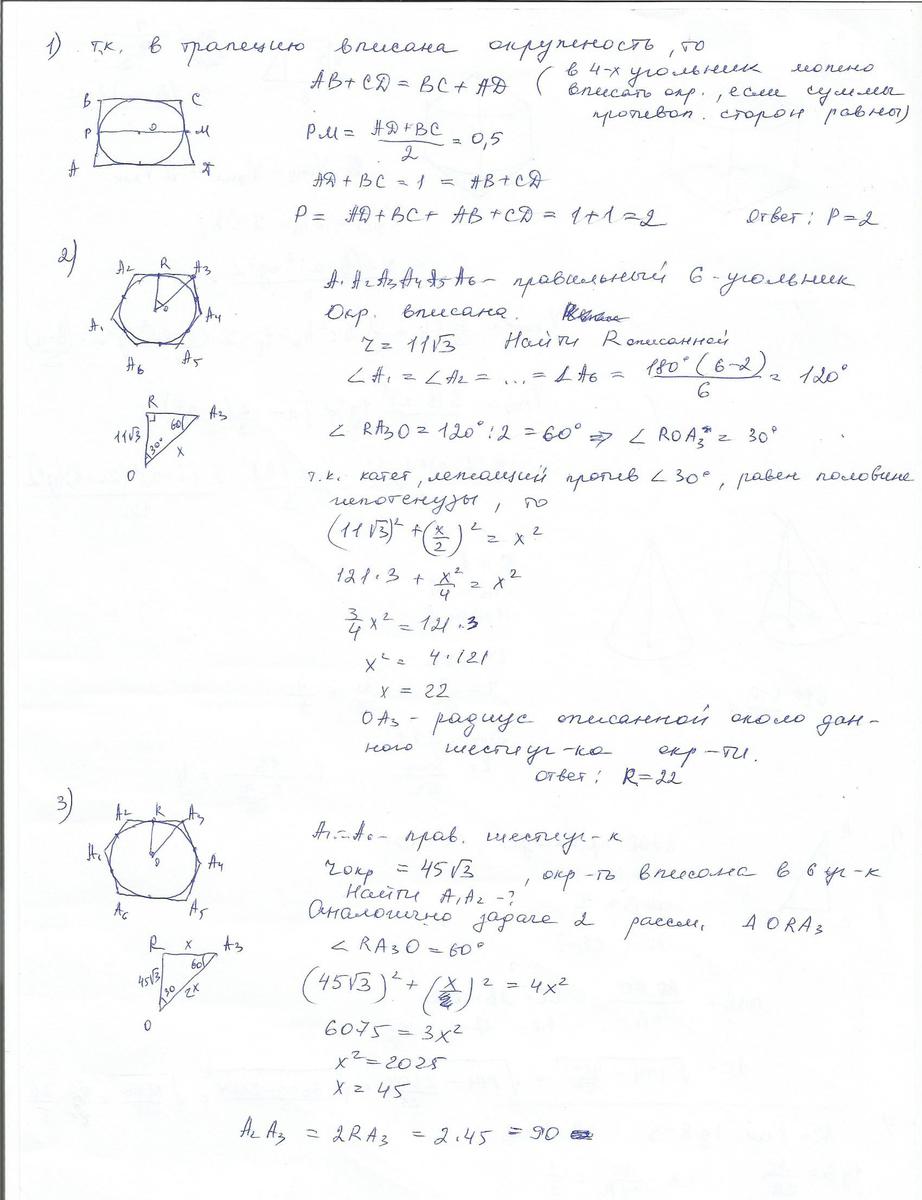 1) т.к. в трапецию вписана окружность, то
AB + CD = BC + AD ( в 4-х угольник можно
вписать окр., если суммы
противоп. сторон равны)
B C
P O M
A D
PM = (AD+BC)/2 = 0,5
AD + BC = 1 = AB + CD
P = AD + BC + AB + CD = 1 + 1 = 2 Ответ: P = 2
2)
A2 R A3
A1 O A4
A6 A5
A1 A2 A3 A4 A5 A6 – правильный 6-угольник
Окр. вписана.
r = 11√3 Найти R описанной
∠A1 = ∠A2 = ... = ∠A6 = 180°(6-2)/6 = 120°
R A3
11√3 60
30° x
O
∠ RA3O = 120° : 2 = 60° ⇒ ∠ ROA3 = 30°
т.к. катет, лежащий против ∠30°, равен половине
гипотенузы, то
(11√3)² + (x/2)² = x²
121·3 + x²/4 = x²
3/4 x² = 121·3
x² = 4·121
x = 22
OA3 – радиус описанной около дан-
ного шестиуг-ка окр-ти.
Ответ: R = 22
3)
A2 R A3
A1 O A4
A6 A5
A1-A6 – прав. шестиуг-к
rокр = 45√3, окр-ть вписана в 6 уг-к
Найти A1A2 - ?
Аналогично задаче 2 рассм. ΔORA3
R x A3
45√3 60
30 2x
O
∠ RA3O = 60°
(45√3)² + (x)² = 4x²
6075 = 3x²
x² = 2025
x = 45
A2A3 = 2RA3 = 2·45 = 90